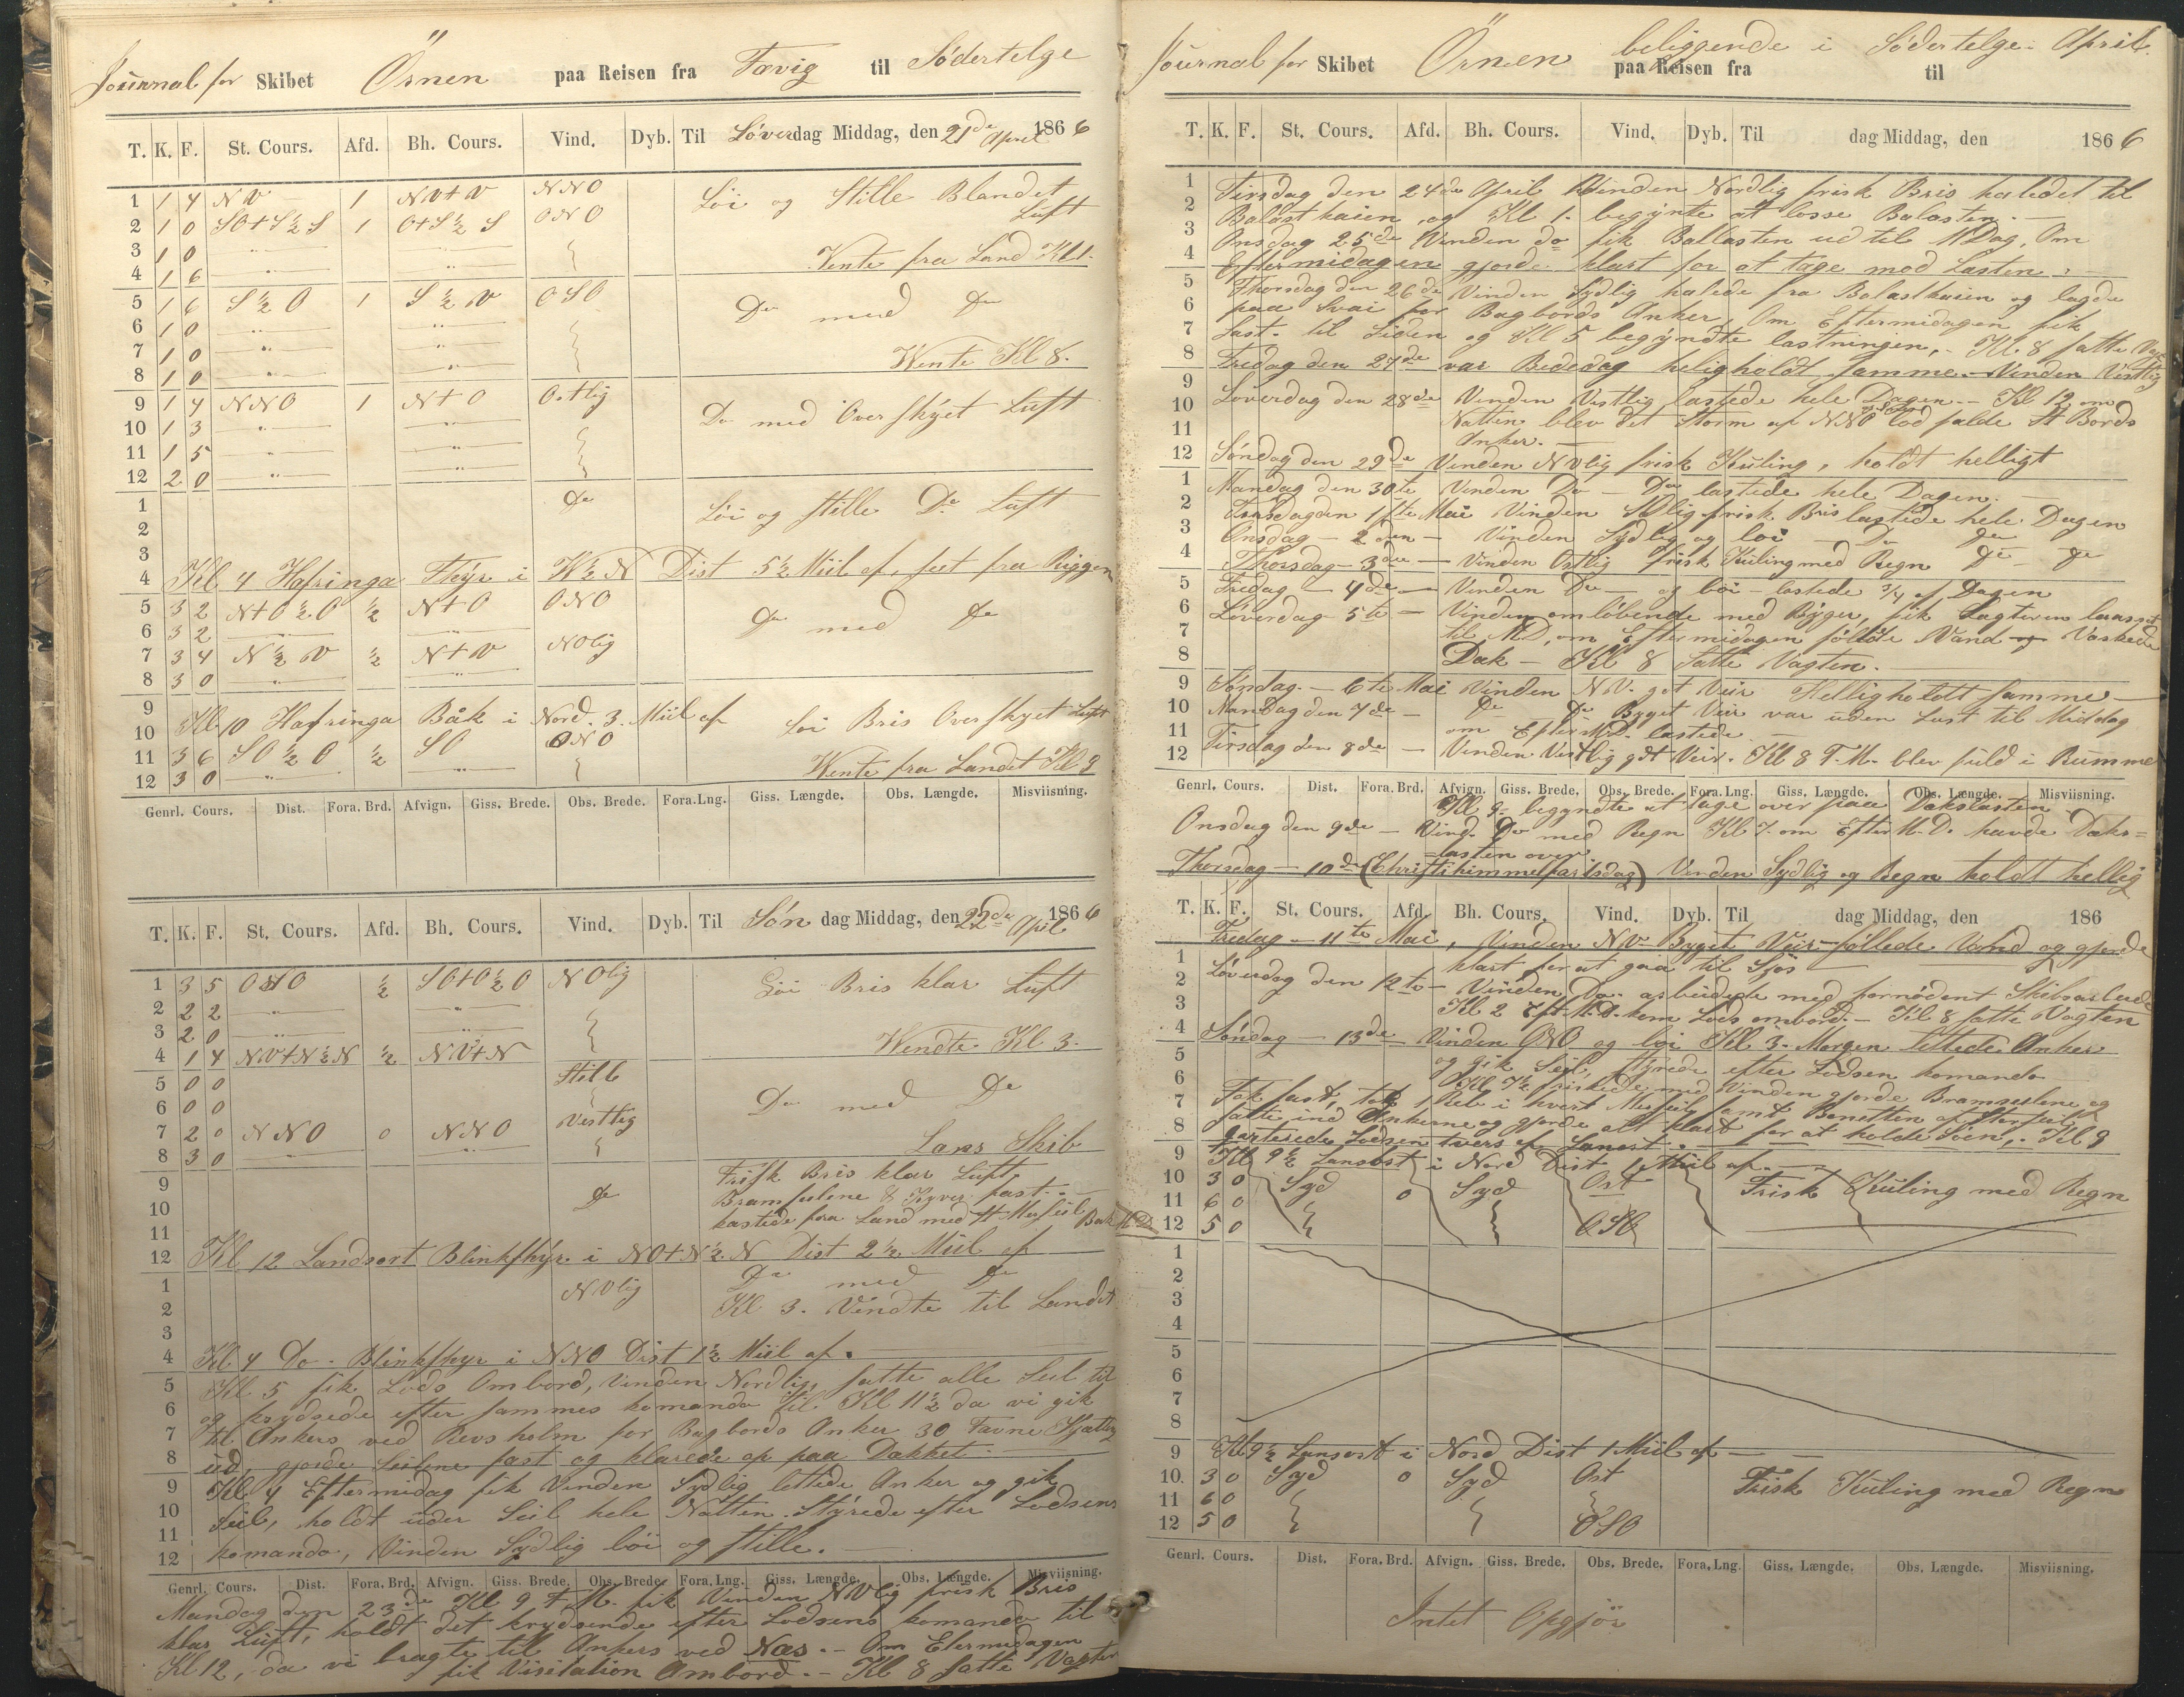 Journal for Skibet Örnen paa Reisen fra Fævig til Södertelge
T. K. F. St. Cours. Afd. Bh. Cours. Vind. Dyb. Til Løverdag Middag, den 21de April 1866
1 1 4 NV 1 NV+V NNO Löi og Stille Blandet
2 1 0 SO+S½S 1 O+S½S ONO Luft
3 1 0
4 1 6 Vente fra Land Kl 1.
5 1 6 S½O 1 S½V OSO Do med Do
6 1 0
7 1 0
8 1 0 Wente Kl 8.
9 1 4 NNO 1 N+O Ostlig Do med Overskyet Luft
10 1 3
11 1 5
12 2 0
1 Do Löi og stille Do Luft
2
3
4 Kl 4 Hafringa Fhyr i W½N Dist 5½ Miil af, seet fra Riggen
5 3 2 N+O½O ½ N+O ONO Do med Do
6 3 2
7 3 4 N½V ½ N+V NOlig
8 3 0
9
10 Kl 10 Hafringa Båk i Nord. 3. Miil af Löi Bris Overskyet Luft
11 3 6 SO½O ½ SO ONO
12 3 0 Wente fra Landet Kl 9
Genrl. Cours. Dist. Fora. Brd. Afvign. Giss. Brede. Obs. Brede. Fora. Lng. Giss. Længde. Obs. Længde. Misviisning.
T. K. F. St. Cours. Afd. Bh. Cours. Vind. Dyb. Til Søndag Middag, den 22de April 1866
1 3 5 OSO ½ SO+O½O NOlig Löi Bris klar Luft
2 2 2
3 2 0
4 1 4 NV+N½N ½ NV+N Wendte Kl 3.
5 0 0 Stille Do med Do
6 0 0
7 2 0 NNO 0 NNO Vestlig
8 3 0 Lans Skib
9 Frisk Bris klar Luft,
10 Do Bramseilene & Kyver fast.
11 kastede fra Land med St Merseil Bak
12 Kl 12 Landsort Blinkfhyr i NO+N½N Dist 2½ Miil af
1 NVlig Do med Do
2 Kl 3. Vendte til Landet
3
4 Kl 4 Do. Blinkfhyr i NNO Dist 1½ Miil af.
5 Kl 5 fik Lods Ombord, Vinden Nordlig, satte alle Seil til
6 og krydsede efter sammes komando til Kl 11½ da vi gik
7 til Ankers ved Revsholm for Bagbords Anker 30 Favne Kjætting
8 ud, gjorde Seilene fast og klarede op paa Dækket.
9 Kl 4 Eftermidag fik Vinden Sydlig lettede Anker og gik
10 Seil, holdt under Seil hele Natten. Styrede efter Lodsens
11
12 komando, Vinden Sydlig löi og stille.
Genrl. Cours. Dist. Fora. Brd. Afvign. Giss. Brede. Obs. Brede. Fora. Lng. Giss. Længde. Obs. Længde. Misviisning.
Mandag den 23de Kl 9 F.M. fik Vinden NVlig frisk Bris
klar Luft, holdt det krydsende efter Lodsens komando til
Kl 12, da vi bragte til Ankers ved Næs. - Om Eftermidagen
fik Visitation Ombord. - Kl 8 satte Vagten
Journal for Skibet Örnen beliggende i Södertelge April
paa Reisen fra til
T. K. F. St. Cours. Afd. Bh. Cours. Vind. Dyb. Til dag Middag, den 1866
1 Tirsdag den 24de April Vinden Nordlig frisk Bris halede til
2 Balastkaien, og Kl 1. begynte at losse Balasten.
3 Onsdag 25de Vinden do fik Ballasten ud til MDag, Om
4 Eftermidagen gjorde klart for at tage mod Lasten.
5 Thorsdag den 26de Vinden Sydlig halede fra Balastkaien og lagde
6 paa Svai for Bagbords Anker, Om Eftermidagen fik
7 Last til Siden og Kl 5 begyndte lastningen, - Kl 8 satte Vagt
8 Fredag den 27de var Bededag heligholdt samme. Vinden Vestlig
9 Løverdag den 28de Vinden Vestlig lastede hele Dagen. - Kl 12 om
10 Natten blev det Storm af NNO lod falde St Bords
11 Anker.
12 Søndag den 29de Vinden NVlig frisk Kuling, holdt helligt
1 Mandag den 30te Vinden Do - Do lastede hele Dagen.
2 Tirsdag den 1ste Mai Vinden SOlig frisk Bris lastede hele Dagen
3 Onsdag - 2den - Vinden Sydlig og löi - Do Do
4 Thorsdag - 3die - Vinden Ostlig frisk Kuling med Regn Do - Do
5 Fredag - 4de - Vinden Do - og löi - lastede 3/4 af Dagen
6 Løverdag 5te - Vinden omløbende med Byger, fik
7 til MD, om Eftermidagen føllede Vand og Vaskede
8 Dæk - Kl 8 Satte Vagten.
9 Søndag - 6te Mai Vinden NV. got Veir Helligholdt samme
10 Mandag den 7de - Do Do Byget Veir var uden Last til Middag
11 om EfterMD. lastede
12 Tirsdag den 8de - Vinden Vestlig gdt Veir. Kl 8 F.M. blev fuld i Rummet
Genrl. Cours. Dist. Fora. Brd. Afvign. Giss. Brede. Obs. Brede. Fora. Lng. Giss. Længde. Obs. Længde. Misviisning.
Kl 9 begyndte at tage over paa Dækslasten
Onsdag den 9de - Vind. Do med Regn Kl 7. om EfterM.D. havde Dæks=
=lasten over
Thorsdag - 10de (Christi himmelfartsdag) Vinden Sydlig og Regn holdt hellig
T. K. F. St. Cours. Afd. Bh. Cours. Vind. Dyb. Til dag Middag, den 186
Fredag - 11te Mai, Vinden NV Byget Veir - føllede Vand og gjorde
1 klart for at gaa til Sjös
2 Løverdag den 12te - Vinden Do. arbeidede med fornödent Skibsarbeide
3 Kl 2 Eft.M.D. kom Lods ombord. - Kl 8 satte Vagten
4 Søndag - 13de Vinden ONO og löi Kl 3. Morgen lettede Anker
5 og gik Seil, styrede efter Lodsen komando
6 Kl 7½ friskede med Vinden gjorde Bramseilene og
7 Fok fast, tok 1 Reb i hvert Merseil samt Bonetten af Storseil,
8 satte ind Ankerne og gjorde alt klart for at holde Söen, - Kl 9
kvitterede Lodsen tvers af Lansort.
9 Kl 9½ Lansort i Nord Dist 1 Miil af.
10 3 0 Syd 0 Syd Ost Frisk Kuling med Regn
11 6 0
12 5 0 OSO
1
2
3
4
5
6
7
8
9 Kl 9½ Lansort i Nord Dist 1 Miil af
10. 3 0 Syd 0 Syd Ost Frisk Kuling med Regn
11 6 0
12 5 0 OSO
Genrl. Cours. Dist. Fora. Brd. Afvign. Giss. Brede. Obs. Brede. Fora. Lng. Giss. Længde. Obs. Længde. Misviisning.
Intet Opgjör